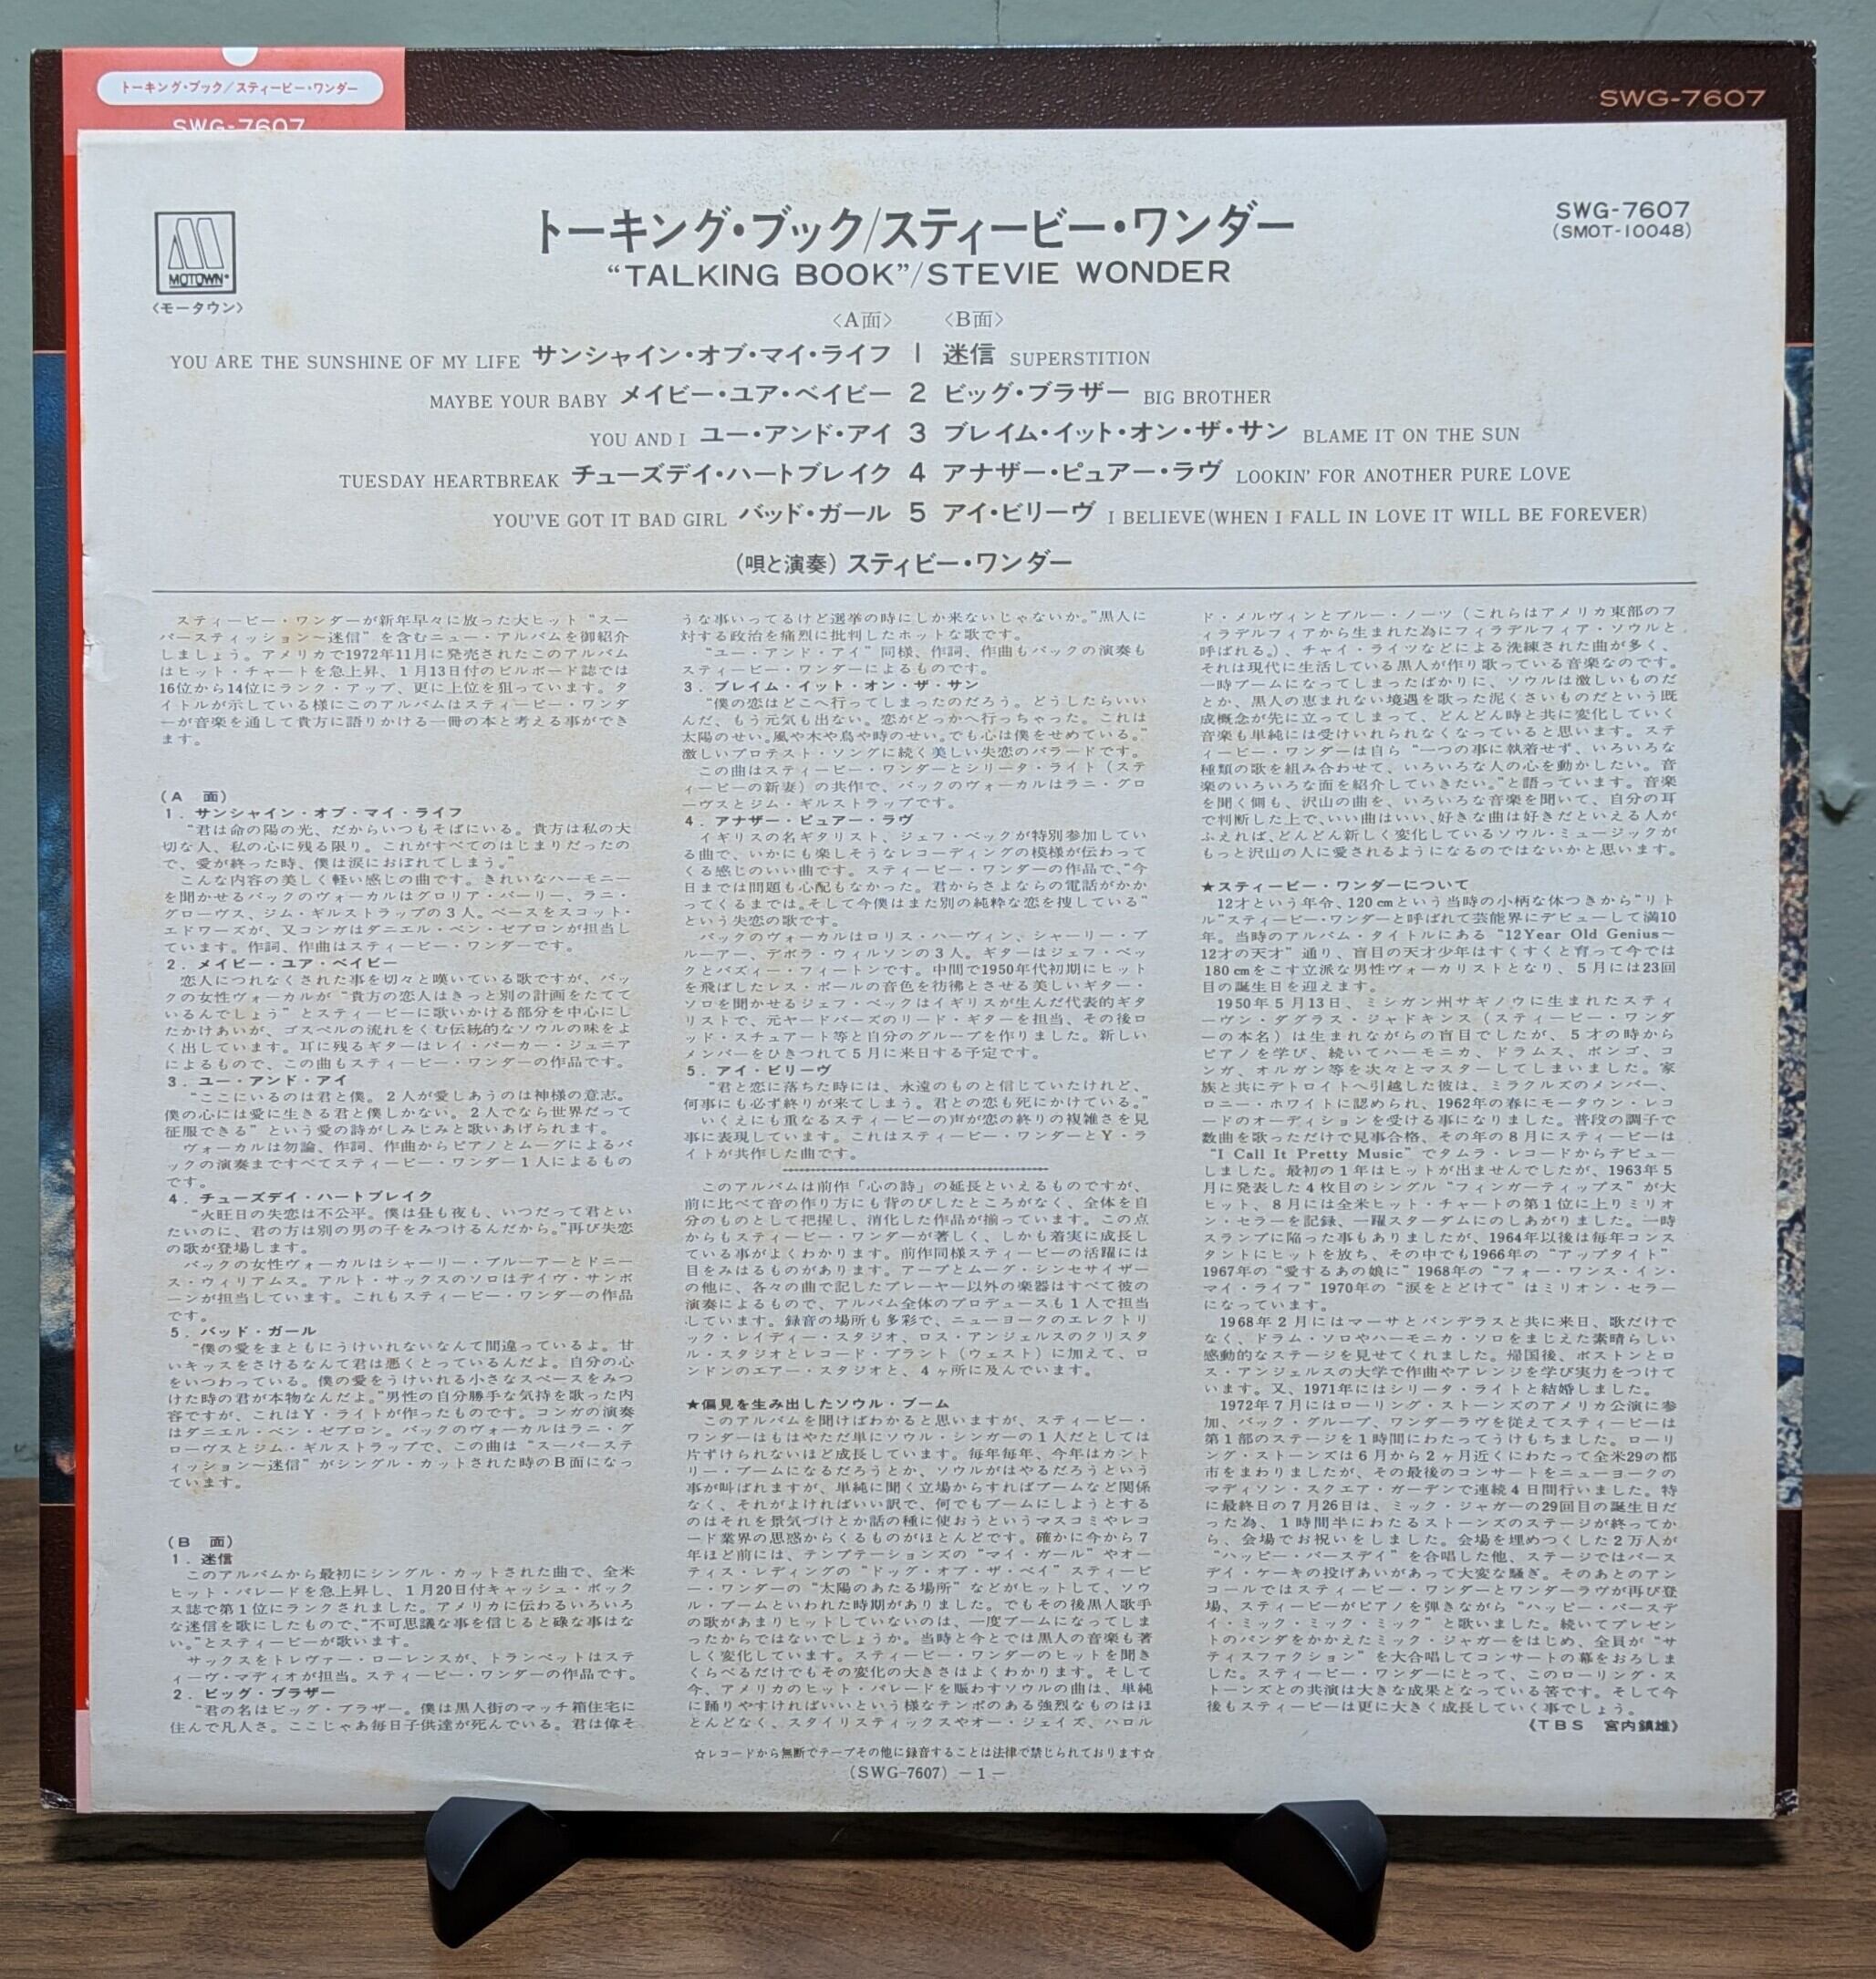 トーキング・ブック/スティービー・ワンダー
SWG-7607
SWG-7607
MOTOWN
〈モータウン〉
トーキング・ブック/スティービー・ワンダー
“TALKING BOOK”/STEVIE WONDER
SWG-7607
(SMOT-10048)
〈A面〉 〈B面〉
YOU ARE THE SUNSHINE OF MY LIFE サンシャイン・オブ・マイ・ライフ 1 迷信 SUPERSTITION
MAYBE YOUR BABY メイビー・ユア・ベイビー 2 ビッグ・ブラザー BIG BROTHER
YOU AND I ユー・アンド・アイ 3 ブレイム・イット・オン・ザ・サン BLAME IT ON THE SUN
TUESDAY HEARTBREAK チューズデイ・ハートブレイク 4 アナザー・ピュアー・ラヴ LOOKIN' FOR ANOTHER PURE LOVE
YOU'VE GOT IT BAD GIRL バッド・ガール 5 アイ・ビリーヴ I BELIEVE(WHEN I FALL IN LOVE IT WILL BE FOREVER)
(唄と演奏) スティビー・ワンダー
スティービー・ワンダーが新年早々に放った大ヒット“スー
パースティッション〜迷信”を含むニュー・アルバムを御紹介
しましょう。アメリカで1972年11月に発売されたこのアルバム
はヒット・チャートを急上昇、1月13日付のビルボード誌では
16位から14位にランク・アップ、更に上位を狙っています。タ
イトルが示している様にこのアルバムはスティービー・ワンダ
ーが音楽を通して貴方に語りかける一冊の本と考える事ができ
ます。
(A 面)
1. サンシャイン・オブ・マイ・ライフ
“君は命の陽の光、だからいつもそばにいる。貴方は私の大
切な人、私の心に残る限り。これがすべてのはじまりだったの
で、愛が終った時、僕は涙におぼれてしまう。”
こんな内容の美しく軽い感じの曲です。きれいなハーモニー
を聞かせるバックのヴォーカルはグロリア・バーリー、ラニ・
グローヴス、ジム・ギルストラップの3人。ベースをスコット・
エドワーズが、又コンガはダニエル・ベン・ゼブロンが担当し
ています。作詞、作曲はスティービー・ワンダーです。
2. メイビー・ユア・ベイビー
恋人につれなくされた事を切々と嘆いている歌ですが、バッ
クの女性ヴォーカルが“貴方の恋人はきっと別の計画をたてて
いるんでしょう”とスティービーに歌いかける部分を中心にし
たかけあいが、ゴスペルの流れをくむ伝統的なソウルの味をよ
く出しています。耳に残るギターはレイ・パーカー・ジュニア
によるもので、この曲もスティービー・ワンダーの作品です。
3. ユー・アンド・アイ
“ここにいるのは君と僕。2人が愛しあうのは神様の意志。
僕の心には愛に生きる君と僕しかない。2人でなら世界だって
征服できる”という愛の詩がしみじみと歌いあげられます。
ヴォーカルは勿論、作詞、作曲からピアノとムーグによるバ
ックの演奏まですべてスティービー・ワンダー1人によるもの
です。
4. チューズデイ・ハートブレイク
“火旺日の失恋は不公平。僕は昼も夜も、いつだって君とい
たいのに、君の方は別の男の子をみつけるんだから。”再び失恋
の歌が登場します。
バックの女性ヴォーカルはシャーリー・ブルーアーとドニー
ス・ウィリアムス。アルト・サックスのソロはデイヴ・サンボ
ーンが担当しています。これもスティービー・ワンダーの作品
です。
5. バッド・ガール
“僕の愛をまともにうけいれないなんて間違っているよ。甘
いキッスをさけるなんて君は悪くとっているんだよ。自分の心
をいつわっている。僕の愛をうけいれる小さなスペースをみつ
けた時の君が本物なんだよ。”男性の自分勝手な気持を歌った内
容ですが、これはY・ライトが作ったものです。コンガの演奏
はダニエル・ベン・ゼブロン。バックのヴォーカルはラニ・グ
ローヴスとジム・ギルストラップで、この曲は“スーパーステ
ィッション〜迷信”がシングル・カットされた時のB面になっ
ています。
(B 面)
1. 迷信
このアルバムから最初にシングル・カットされた曲で、全米
ヒット・パレードを急上昇し、1月20日付キャッシュ・ボック
ス誌で第1位にランクされました。アメリカに伝わるいろいろ
な迷信を歌にしたもので、“不可思議な事を信じると碌な事はな
い。”とスティービーが歌います。
サックスをトレヴァー・ローレンスが、トランペットはステ
ィーヴ・マディオが担当。スティービー・ワンダーの作品です。
2. ビッグ・ブラザー
“君の名はビッグ・ブラザー。僕は黒人街のマッチ箱住宅に
住んで凡人さ。ここじゃあ毎日子供達が死んでいる。君は偉そ
うな事いってるけど選挙の時にしか来ないじゃないか。”黒人に
対する政治を痛烈に批判したホットな歌です。
“ユー・アンド・アイ”同様、作詞、作曲もバックの演奏も
スティービー・ワンダーによるものです。
3. ブレイム・イット・オン・ザ・サン
“僕の恋はどこへ行ってしまったのだろう。どうしたらいい
んだ、もう元気も出ない。恋がどっかへ行っちゃった。これは
太陽のせい。風や木や鳥や時のせい。でも心は僕をせめている。”
激しいプロテスト・ソングに続く美しい失恋のバラードです。
この曲はスティービー・ワンダーとシリータ・ライト（ステ
ィービーの新妻）の共作で、バックのヴォーカルはラニ・グロ
ーヴスとジム・ギルストラップです。
4. アナザー・ピュアー・ラヴ
イギリスの名ギタリスト、ジェフ・ベックが特別参加してい
る曲で、いかにも楽しそうなレコーディングの模様が伝わって
くる感じのいい曲です。スティービー・ワンダーの作品で、“今
日までは問題も心配もなかった。君からさよならの電話がかか
ってくるまでは。そして今僕はまた別の純粋な恋を捜している”
という失恋の歌です。
バックのヴォーカルはロリス・ハーヴィン、シャーリー・ブ
ルーアー、デボラ・ウィルソンの3人。ギターはジェフ・ベッ
クとバズィー・フィートンです。中間で1950年代初期にヒット
を飛ばしたレス・ポールの音色を彷彿とさせる美しいギター・
ソロを聞かせるジェフ・ベックはイギリスが生んだ代表的ギタ
リストで、元ヤードバーズのリード・ギターを担当、その後ロ
ッド・スチュアート等と自分のグループを作りました。新しい
メンバーをひきつれて5月に来日する予定です。
5. アイ・ビリーヴ
“君と恋に落ちた時には、永遠のものと信じていたけれど、
何事にも必ず終りが来てしまう。君との恋も死にかけている。”
いくえにも重なるスティービーの声が恋の終りの複雑さを見
事に表現しています。これはスティービー・ワンダーとY・ラ
イトが共作した曲です。
このアルバムは前作「心の詩」の延長といえるものですが、
前に比べて音の作り方にも背のびしたところがなく、全体を自
分のものとして把握し、消化した作品が揃っています。この点
からもスティービー・ワンダーが著しく、しかも着実に成長し
ている事がよくわかります。前作同様スティービーの活躍には
目をみはるものがあります。アープとムーグ・シンセサイザー
の他に、各々の曲で記したプレーヤー以外の楽器はすべて彼の
演奏によるもので、アルバム全体のプロデュースも1人で担当
しています。録音の場所も多彩で、ニューヨークのエレクトリ
ック・レイディー・スタジオ、ロス・アンジェルスのクリスタ
ル・スタジオとレコード・プラント（ウェスト）に加えて、ロ
ンドンのエアー・スタジオと、4ヶ所に及んでいます。
★偏見を生み出したソウル・ブーム
このアルバムを聞けばわかると思いますが、スティービー・
ワンダーはもはやただ単にソウル・シンガーの1人だとしては
片ずけられないほど成長しています。毎年毎年、今年はカント
リー・ブームになるだろうとか、ソウルがはやるだろうという
事が叫ばれますが、単純に聞く立場からすればブームなど関係
なく、それがよければいい訳で、何でもブームにしようとする
のはそれを景気づけとか話の種に使おうというマスコミやレコ
ード業界の思惑からくるものがほとんどです。確かに今から7
年ほど前には、テンプテーションズの“マイ・ガール”やオー
ティス・レディングの“ドッグ・オブ・ザ・ベイ”スティービ
ー・ワンダーの“太陽のあたる場所”などがヒットして、ソウ
ル・ブームといわれた時期がありました。でもその後黒人歌手
の歌があまりヒットしていないのは、一度ブームになってしま
ったからではないでしょうか。当時と今とでは黒人の音楽も著
しく変化しています。スティービー・ワンダーのヒットを聞き
くらべるだけでもその変化の大きさはよくわかります。そして
今、アメリカのヒット・パレードを賑わすソウルの曲は、単純
に踊りやすければいいという様なテンポのある強烈なものはほ
とんどなく、スタイリスティックスやオー・ジェイズ、ハロル
ド・メルヴィンとブルー・ノーツ（これらはアメリカ東部のフ
ィラデルフィアから生まれた為にフィラデルフィア・ソウルと
呼ばれる。）、チャイ・ライツなどによる洗練された曲が多く、
それは現代に生活している黒人が作り歌っている音楽なのです。
一時ブームになってしまったばかりに、ソウルは激しいものだ
とか、黒人の恵まれない境遇を歌った泥くさいものだという既
成概念が先に立ってしまって、どんどん時と共に変化していく
音楽も単純には受けいれられなくなっていると思います。ステ
ィービー・ワンダーは自ら“一つの事に執着せず、いろいろな
種類の歌を組み合わせて、いろいろな人の心を動かしたい。音
楽のいろいろな面を紹介していきたい。”と語っています。音楽
を聞く側も、沢山の曲を、いろいろな音楽を聞いて、自分の耳
で判断した上で、いい曲はいい、好きな曲は好きだといえる人が
ふえれば、どんどん新しく変化しているソウル・ミュージックが
もっと沢山の人に愛されるようになるのではないかと思います。
★スティービー・ワンダーについて
12才という年令、120cmという当時の小柄な体つきから“リト
ル”スティービー・ワンダーと呼ばれて芸能界にデビューして満10
年。当時のアルバム・タイトルにある“12Year Old Genius〜
12才の天才”通り、盲目の天才少年はすくすくと育って今では
180cmをこす立派な男性ヴォーカリストとなり、5月には23回
目の誕生日を迎えます。
1950年5月13日、ミシガン州サギノウに生まれたスティ
ーヴン・ダグラス・ジャドキンス（スティービー・ワンダ
ーの本名）は生まれながらの盲目でしたが、5才の時から
ピアノを学び、続いてハーモニカ、ドラムス、ボンゴ、コ
ンガ、オルガン等を次々とマスターしてしまいました。家
族と共にデトロイトへ引越した彼は、ミラクルズのメンバー、
ロニー・ホワイトに認められ、1962年の春にモータウン・レコ
ードのオーディションを受ける事になりました。普段の調子で
数曲を歌っただけで見事合格、その年の8月にスティービーは
“I Call It Pretty Music”でタムラ・レコードからデビュー
しました。最初の1年はヒットが出ませんでしたが、1963年5
月に発表した4枚目のシングル“フィンガーティップス”が大
ヒット、8月には全米ヒット・チャートの第1位に上りミリオ
ン・セラーを記録、一躍スターダムにのしあがりました。一時
スランプに陥った事もありましたが、1964年以後は毎年コンス
タントにヒットを放ち、その中でも1966年の“アップタイト”
1967年の“愛するあの娘に”1968年の“フォー・ワンス・イン・
マイ・ライフ”1970年の“涙をとどけて”はミリオン・セラー
になっています。
1968年2月にはマーサとバンデラスと共に来日、歌だけで
なく、ドラム・ソロやハーモニカ・ソロをまじえた素晴らしい
感動的なステージを見せてくれました。帰国後、ボストンとロ
ス・アンジェルスの大学で作曲やアレンジを学び実力をつけて
います。又、1971年にはシリータ・ライトと結婚しました。
1972年7月にはローリング・ストーンズのアメリカ公演に参
加、バック・グループ、ワンダーラヴを従えてスティービーは
第1部のステージを1時間にわたってうけもちました。ローリ
ング・ストーンズは6月から2ヶ月近くにわたって全米29の都
市をまわりましたが、その最後のコンサートをニューヨークの
マディソン・スクエア・ガーデンで連続4日間行いました。特
に最終日の7月26日は、ミック・ジャガーの29回目の誕生日だ
った為、1時間半にわたるストーンズのステージが終ってか
ら、会場でお祝いをしました。会場を埋めつくした2万人が
“ハッピー・バースデイ”を合唱した他、ステージではバース
デイ・ケーキの投げあいがあって大変な騒ぎ。そのあとのアン
コールではスティービー・ワンダーとワンダーラヴが再び登
場、スティービーがピアノを弾きながら“ハッピー・バースデ
イ・ミック・ミック・ミック”と歌いました。続いてプレゼン
トのパンダをかかえたミック・ジャガーをはじめ、全員が“サ
ティスファクション”を大合唱してコンサートの幕をおろしま
した。スティービー・ワンダーにとって、このローリング・ス
トーンズとの共演は大きな成果となっている筈です。そして今
後もスティービーは更に大きく成長していく事でしょう。
《TBS 宮内鎮雄》
☆レコードから無断でテープその他に録音することは法律で禁じられております☆
(SWG-7607) －1－